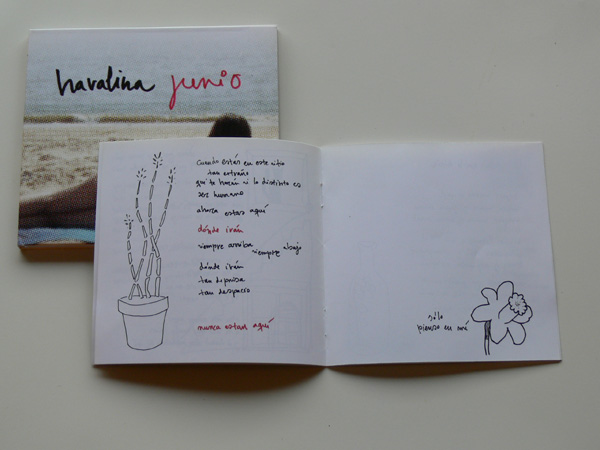 havalina junio
cuando estás en este sitio
tan extraño
qué te harán si lo distinto es
ser humano
ahora estás aquí
dónde irán
siempre arriba
siempre abajo
dónde irán
tan deprisa
tan despacio
nunca estás aquí
sólo
pienso en mí